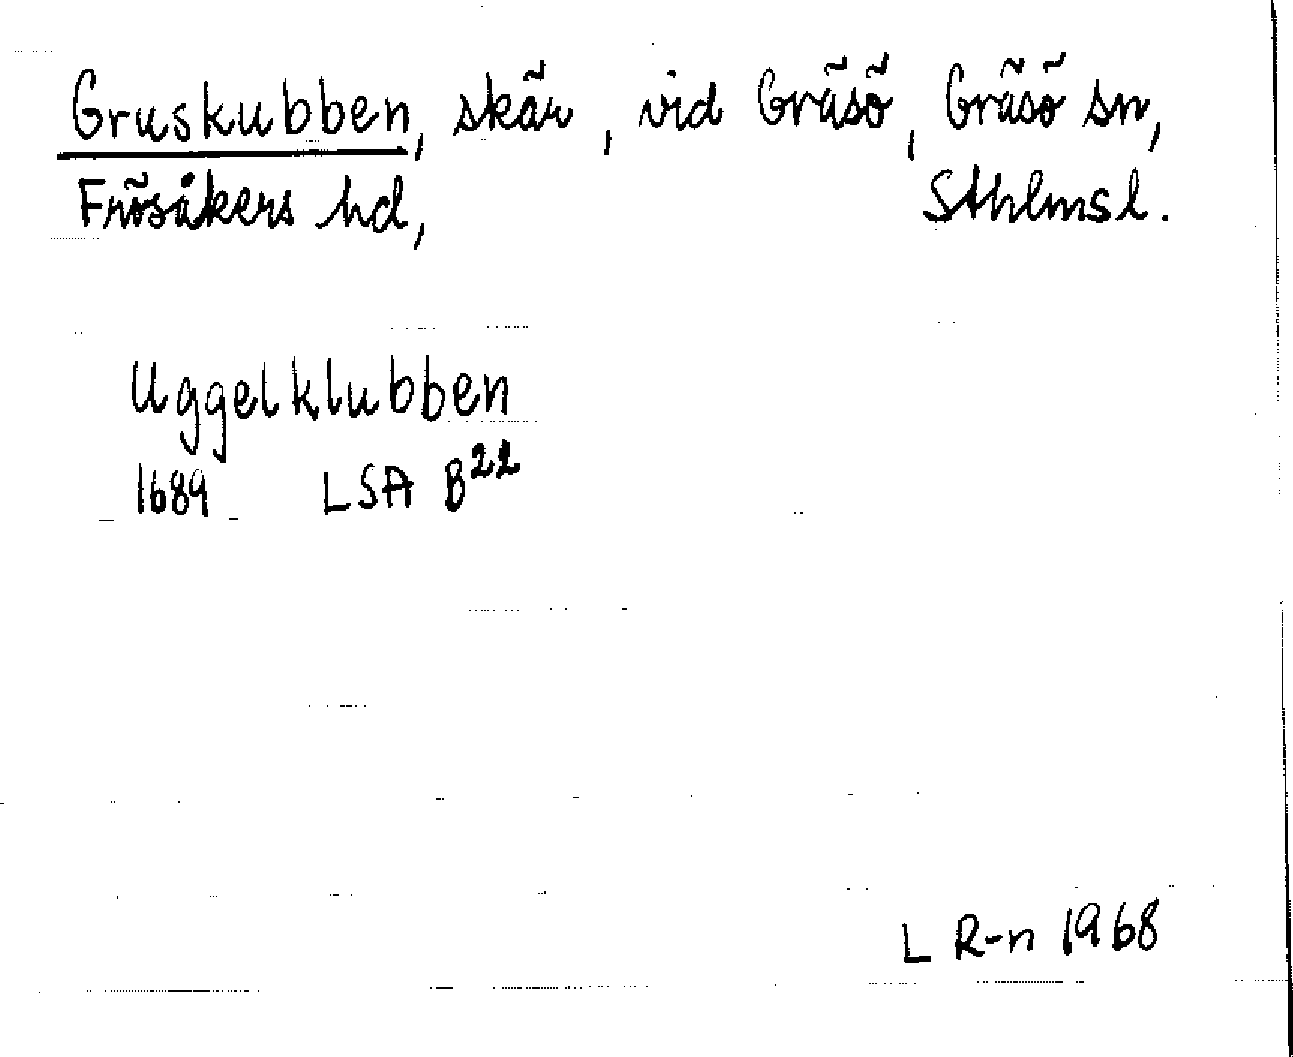 Gruskubben, skär, vid Gräsö, Gräsö sn,
Frösåkers hd, Sthlmsl.
Uggelklubben
1689 LSA B22
L R-n 1968